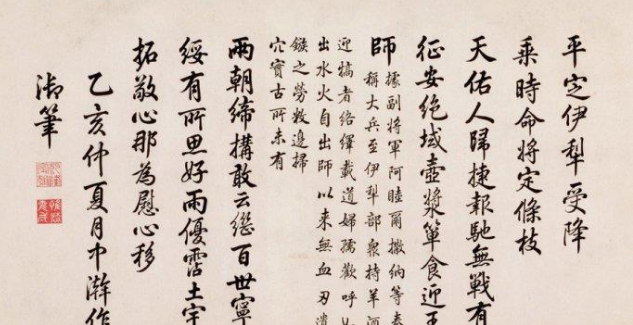 平定伊犁受降
乘時命將定條枝
天佑人歸捷報馳無戰有
征安絕域壺漿簞食迎王
師
據副將軍阿睦爾撒納等奏
稱大兵至伊犁部衆持羊酒
迎犒者絡繹載道婦孺歡呼如
出水火自出師以来無血刃遺
鏃之勞敉邊掃
穴實古所未有
兩朝締搆敢云繼百世寧
綏有所思好雨優霑土宇
拓敬心那為慰心移
乙亥仲夏月中澣作
御筆